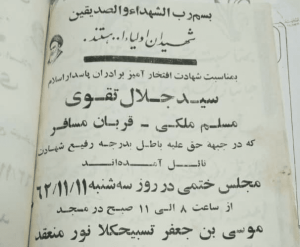 بسم رب الشهداء والصدیقین
شهیدان اولیاء الله هستند.
بمناسبت شهادت افتخار آمیز برادران پاسدار اسلام
سید جلال تقوی
مسلم ملکی - قربان مسافر
که در جبهه حق علیه باطل بدرجه رفیع شهادت
نائل آمده‌اند
مجلس ختمی در روز سه شنبه ۶۲/۱۱/۱۱
از ساعت ۸ الی ۱۱ صبح در مسجد
موسی بن جعفر تسبیحکلا نور منعقد